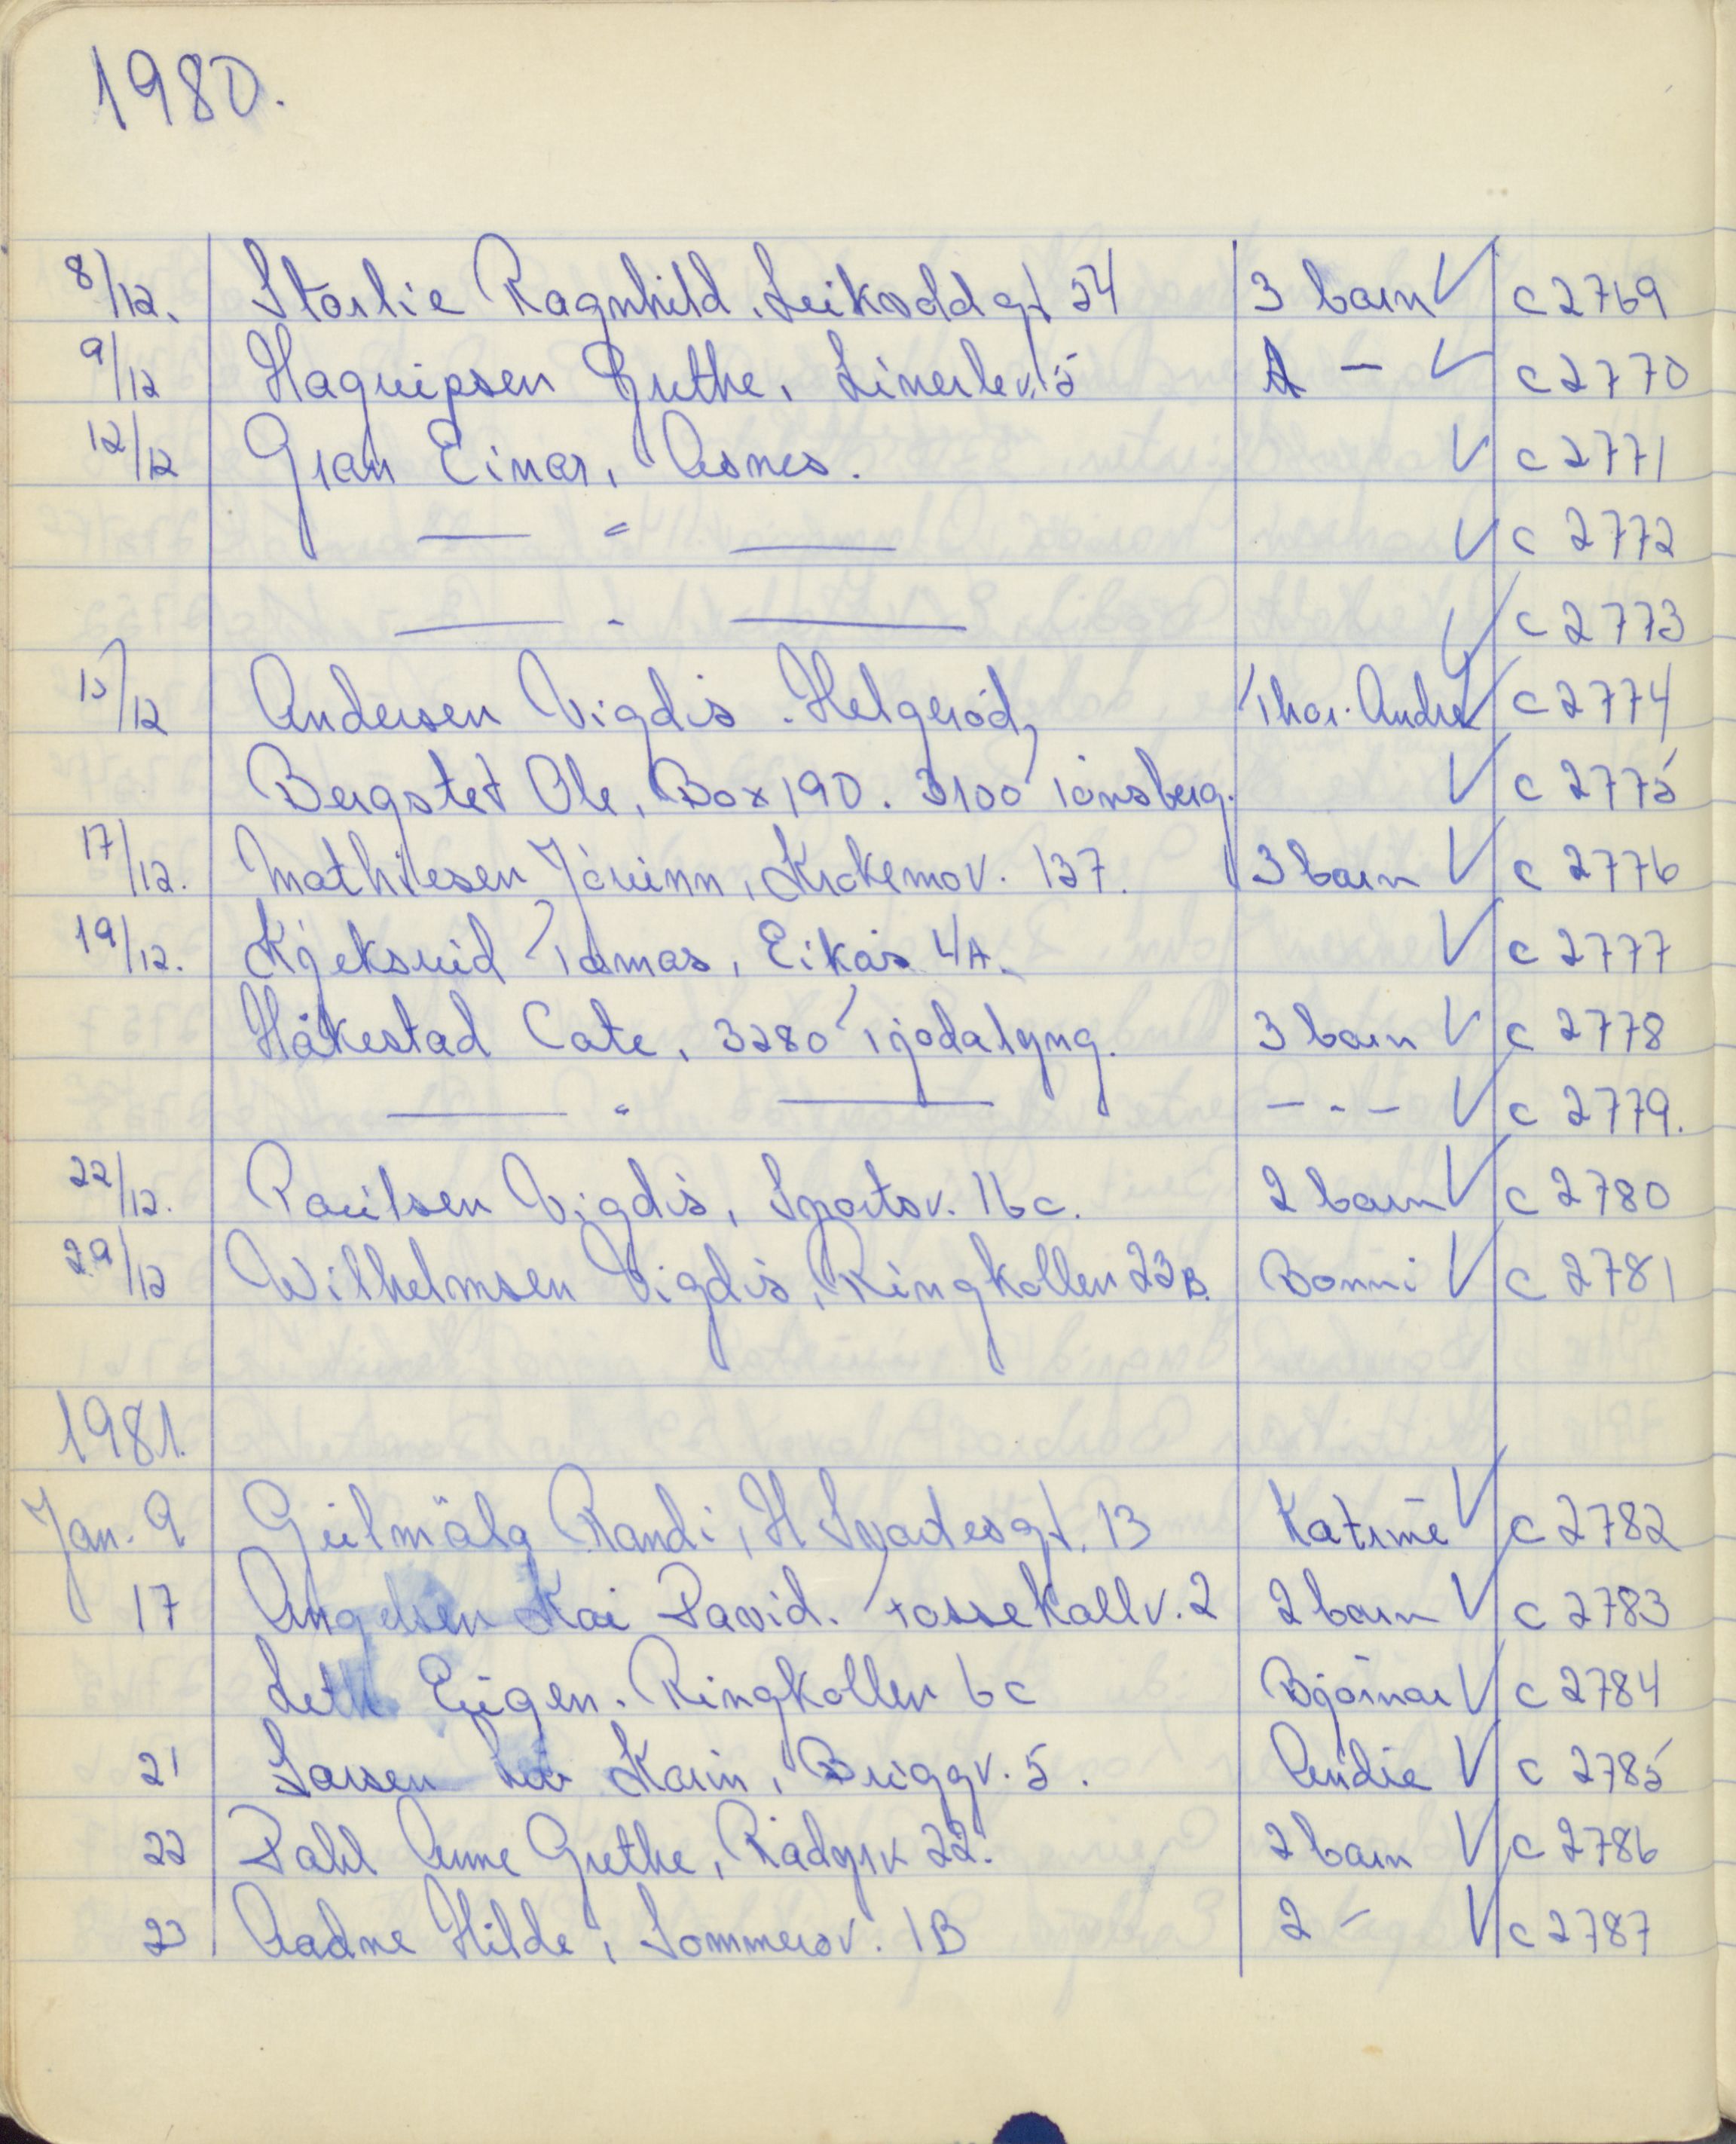 1980.
8/12. Storlie Ragnhild. Leikvoldgt 54 3 barn V C 2769
9/12 Haqvipsen Grethe, Linerlev. 5 A - V C 2770
12/12 Gran Einar, Åsnes. V C 2771
— " — V C 2772
— " — V C 2773
15/12 Andersen Vigdis. Helgerød, Thor. André V C 2774
Bergstet Ole, Box 190. 3100 Tønsberg. V C 2775
17/12. Mathiesen Jórunn, Krokemov. 137. 3 barn V C 2776
19/12. Kjeksrud Tomas, Eikås 4A. V C 2777
Håkestad Cate, 3280 Tjodalyng. 3 barn V C 2778
— " — - - - V C 2779.
22/12. Paulsen Vigdis, Sportsv. 16c. 2 barn V C 2780
29/12 Wilhelmsen Vigdis, Ringkollen 23B. Bonni V C 2781
1981.
Jan. 9 Randi, H 13 Katrine V C 2782
17 Angelsen Kai David. Fossekallv. 2 2 barn V C 2783
Leth Eugen. Ringkollen 6c Bjørnar V C 2784
21 Larsen Liv Karin, Bruggv. 5. V C 2785
22 Dahl Anne Grethe, Rådyrv 22. 2 barn V C 2786
23 Aadne Hilde, Sommerov. 1B 2 - V C 2787